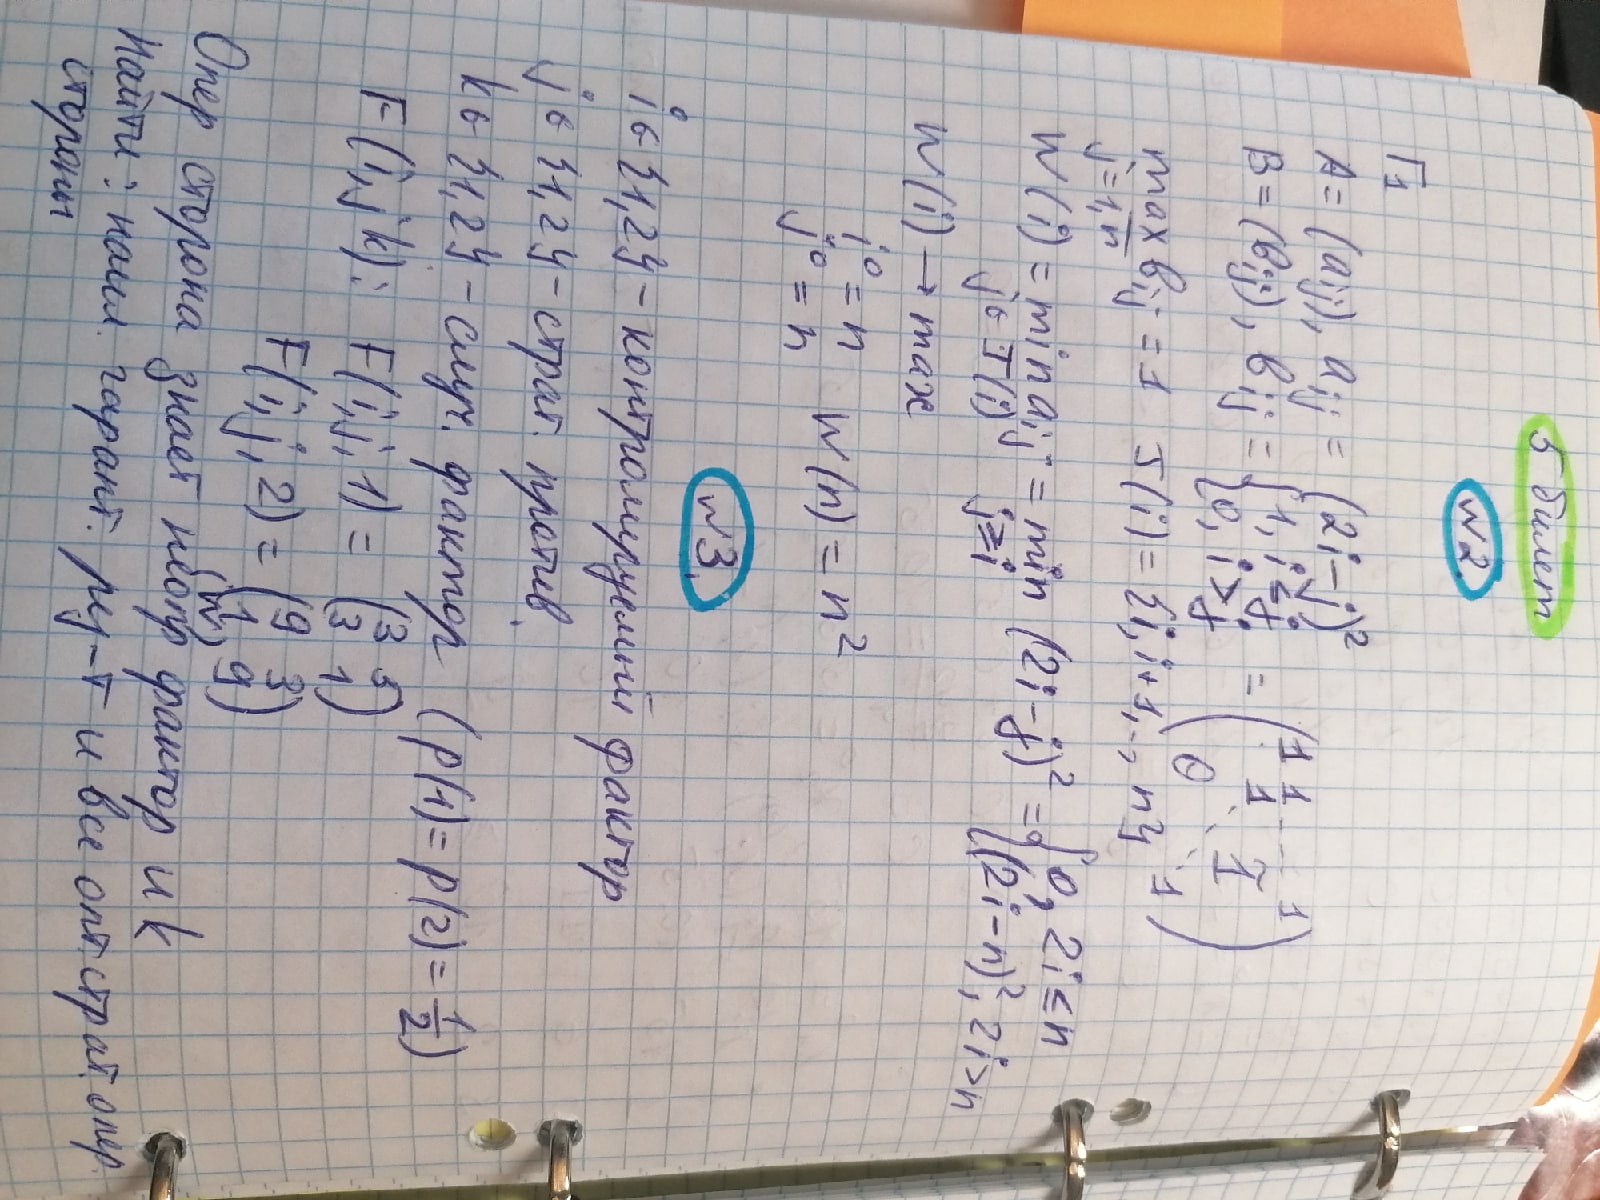 5 билет
№2
Г₁
A = (aᵢⱼ), aᵢⱼ = (2i-j)²
B = (bᵢⱼ), bᵢⱼ = {1, i≤j; 0, i>j = (1 1 ... 1; 1 ⋱ 1; 0 1)
max bᵢⱼ = 1 J(i) = {i, i+1, .., n}
j=1,n
W(i) = min aᵢⱼ = min (2i-j)² = {0, 2i≤n; (2i-n)², 2i>n
j∈J(i) j≥i
W(i) → max
i⁰ = n W(n) = n²
j⁰ = n
№3.
i ∈ {1,2} - контролируемый фактор
j ∈ {1,2} - страт. против.
k ∈ {1,2} - случ. фактор (p(1) = p(2) = 1/2)
F(i,j,k): F(i,j,1) = (3 5; 3 1)
F(i,j,2) = (9 3; 1 9)
Опер сторона знает неопр фактор и k
Найти: наил. гарант. рез-т и все опт. страт. опер.
стороны